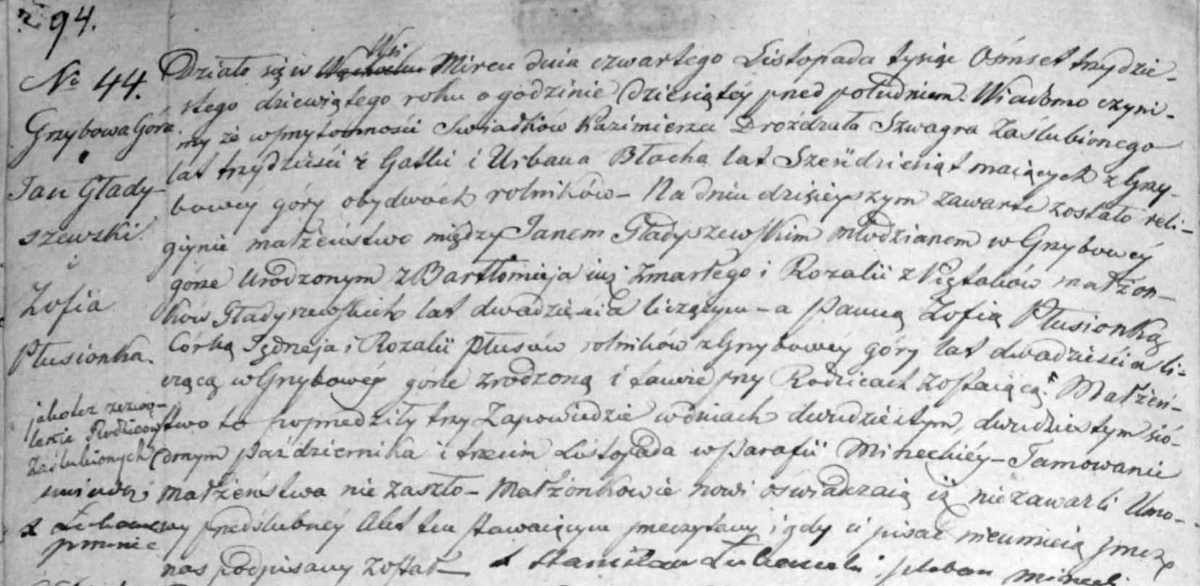 94.
N 44.
Grzybowa Góra
i
Jan Głady-
szewski
i
Zofia
Płusionka.
jakoteż zezwo-
lenie Rodziców
Zaślubionych
ustnie
Działo się w Wsi Mircu dnia czwartego Listopada tysiąc Ośmset trzydzie-
stego dziewiątego roku o godzinie dziesiątey przed południem. Wiadomo czyni-
my że w przytomności Swiadków Kazimierza Drożdżała Szwagra Zaślubionego
lat trzydzieści z Gatki i Urbana Błacha lat Sześćdziesiąt maiących z Grzy-
bowey góry obydwóch rolników – Na dniu dzisieyszym zawarte zostało reli-
giyne małżeństwo między Janem Gładyszewskim młodzianem w Grzybowey
górze urodzonym z Bartłomieja iuż zmarłego i Rozalii z Piętaków małżon-
ków Gładyszewskich lat dwadzieścia liczącym – a Panną Zofią Płusionką
Córką Jędrzeja i Rozalii Płusów rolników z Grzybowey góry lat dwadzieścia li-
czącą w Grzybowéy górze zrodzoną i tamże przy Rodzicach zostaiącą. Małżeń-
stwo to poprzedziły trzy Zapowiedzie w dniach dwudziestym, dwudziestym sió-
dmym Października i trzecim Listopada w Parafii Mireckiéy – Tamowanie
małżeństwa nie zaszło – Małżonkowie nowi oświadczaią iż niezawarli Umo-
wy przedślubney Akt ten stawaiącym przeczytany i gdy ci pisać nieumieią przez
nas podpisany został – X Stanisław pleban